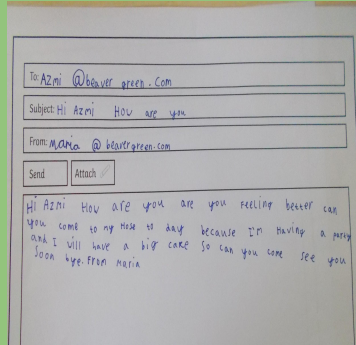 To: Azmi @beaver green.com
Subject: Hi Azmi How are you
From: maria @ beavergreen.com
Send Attach
Hi Azmi How are you are you Feeling better can
you come to my Hose to day because I'm Having a party
and I will have a big cake so can you come see you
Soon bye. From Maria